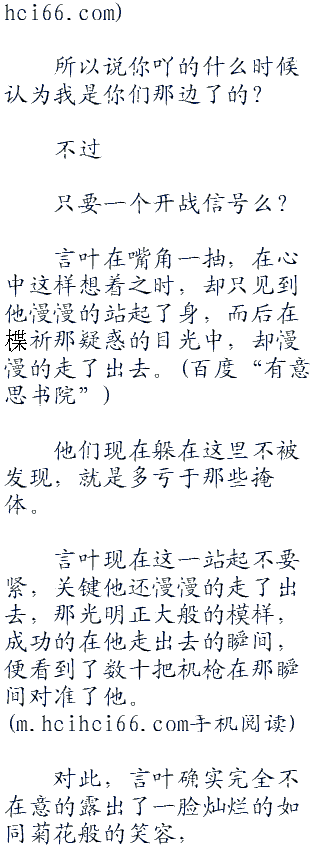 hci66.com)
所以说你吖的什么时候
认为我是你们那边了的?
不过
只要一个开战信号么?
言叶在嘴角一抽，在心
中这样想着之时，却只见到
他慢慢的站起了身，而后在
楪祈那疑惑的目光中，却慢
慢的走了出去。(百度“有意
思书院”)
他们现在躲在这里不被
发现，就是多亏于那些掩
体。
言叶现在这一站起不要
紧，关键他还慢慢的走了出
去，那光明正大般的模样，
成功的在他走出去的瞬间，
便看到了数十把机枪在那瞬
间对准了他。
(m.hcihci66.com手机阅读)
对此，言叶确实完全不
在意的露出了一脸灿烂的如
同菊花般的笑容，